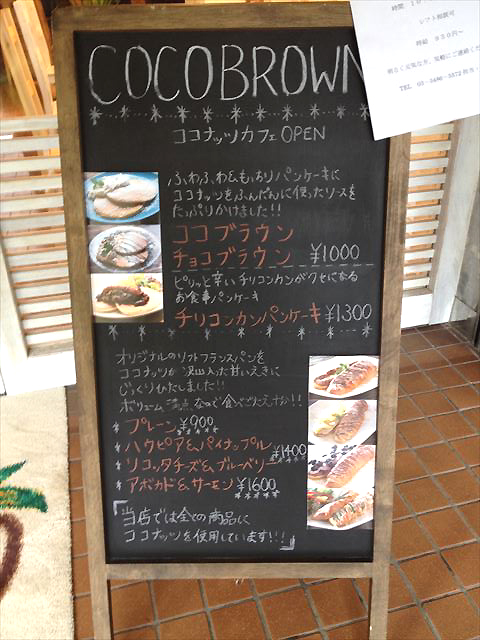 時給 950円〜
COCOBROWN
ココナッツカフェOPEN
ふわふわ&もっちりパンケーキに
ココナッツをふんだんに使ったソースを
たっぷりかけました!!
ココブラウン
チョコブラウン ¥1000
ピリッと辛いチリコンカンがクセになる
お食事パンケーキ
チリコンカンパンケーキ ¥1300
オリジナルのソフトフランスパンを
ココナッツが沢山入った甘いえきに
じっくりひたしました!!
ボリューム満点なので食べごたえアリ!!
* プレーン ¥900
* ハウピア&パイナップル
* リコッタチーズ&ブルーベリー ¥1400
* アボカド&サーモン ¥1600
「当店では全ての商品に
ココナッツを使用しています!!!」